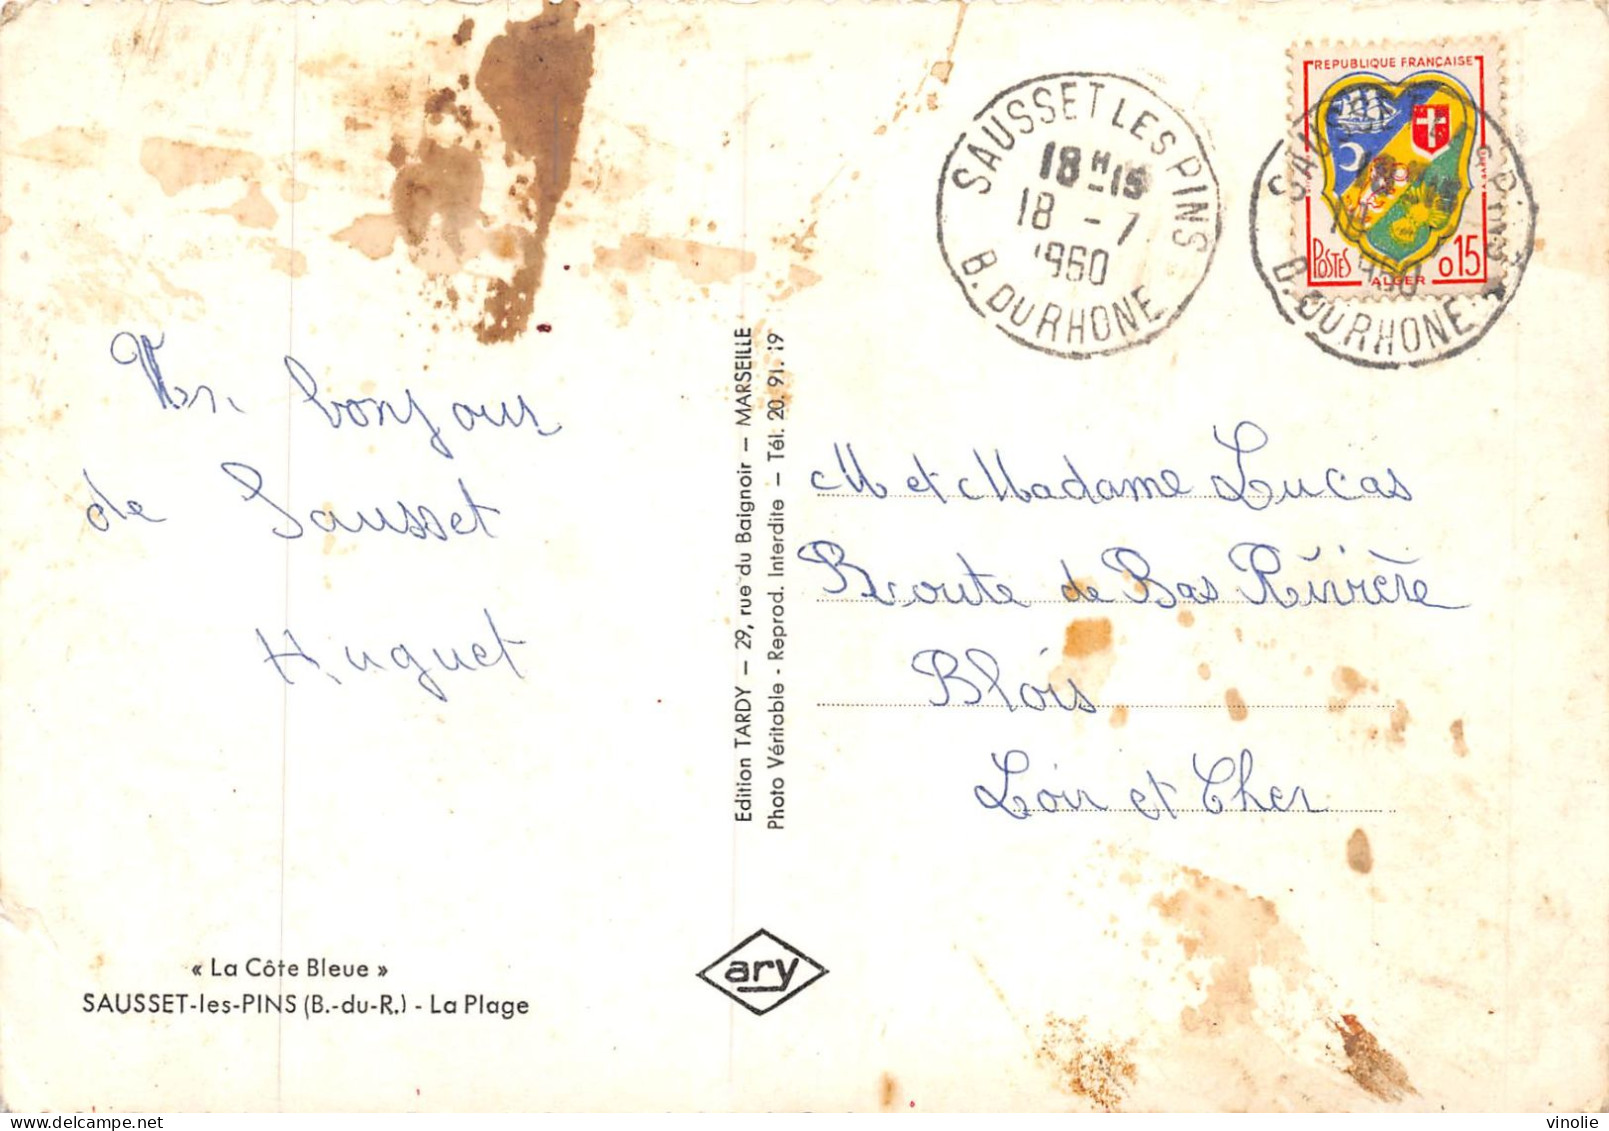 Un bonjour
de Sausset
Huguet
« La Côte Bleue »
SAUSSET-les-PINS (B.-du-R.) - La Plage
Edition TARDY — 29, rue du Baignoir — MARSEILLE
Photo Véritable - Reprod. Interdite — Tél. 20. 91. 19
ary
SAUSSET LES PINS
18 H 15
18 - 7
1960
B. DU RHONE
REPUBLIQUE FRANÇAISE
POSTES
ALGER
0 15
B. DU RHONE
M et Madame Lucas
Route de Bas Rivière
Blois
Loir et Cher
vinolie